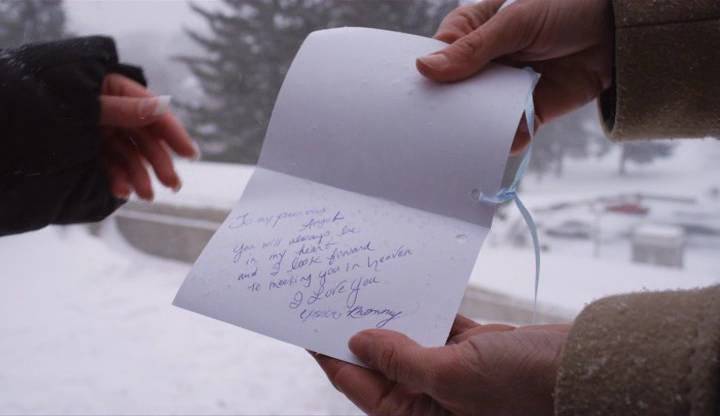 To my precious
Angel
You will always be
in my heart
and I look forward
to meeting you in heaven
I Love You
Mommy